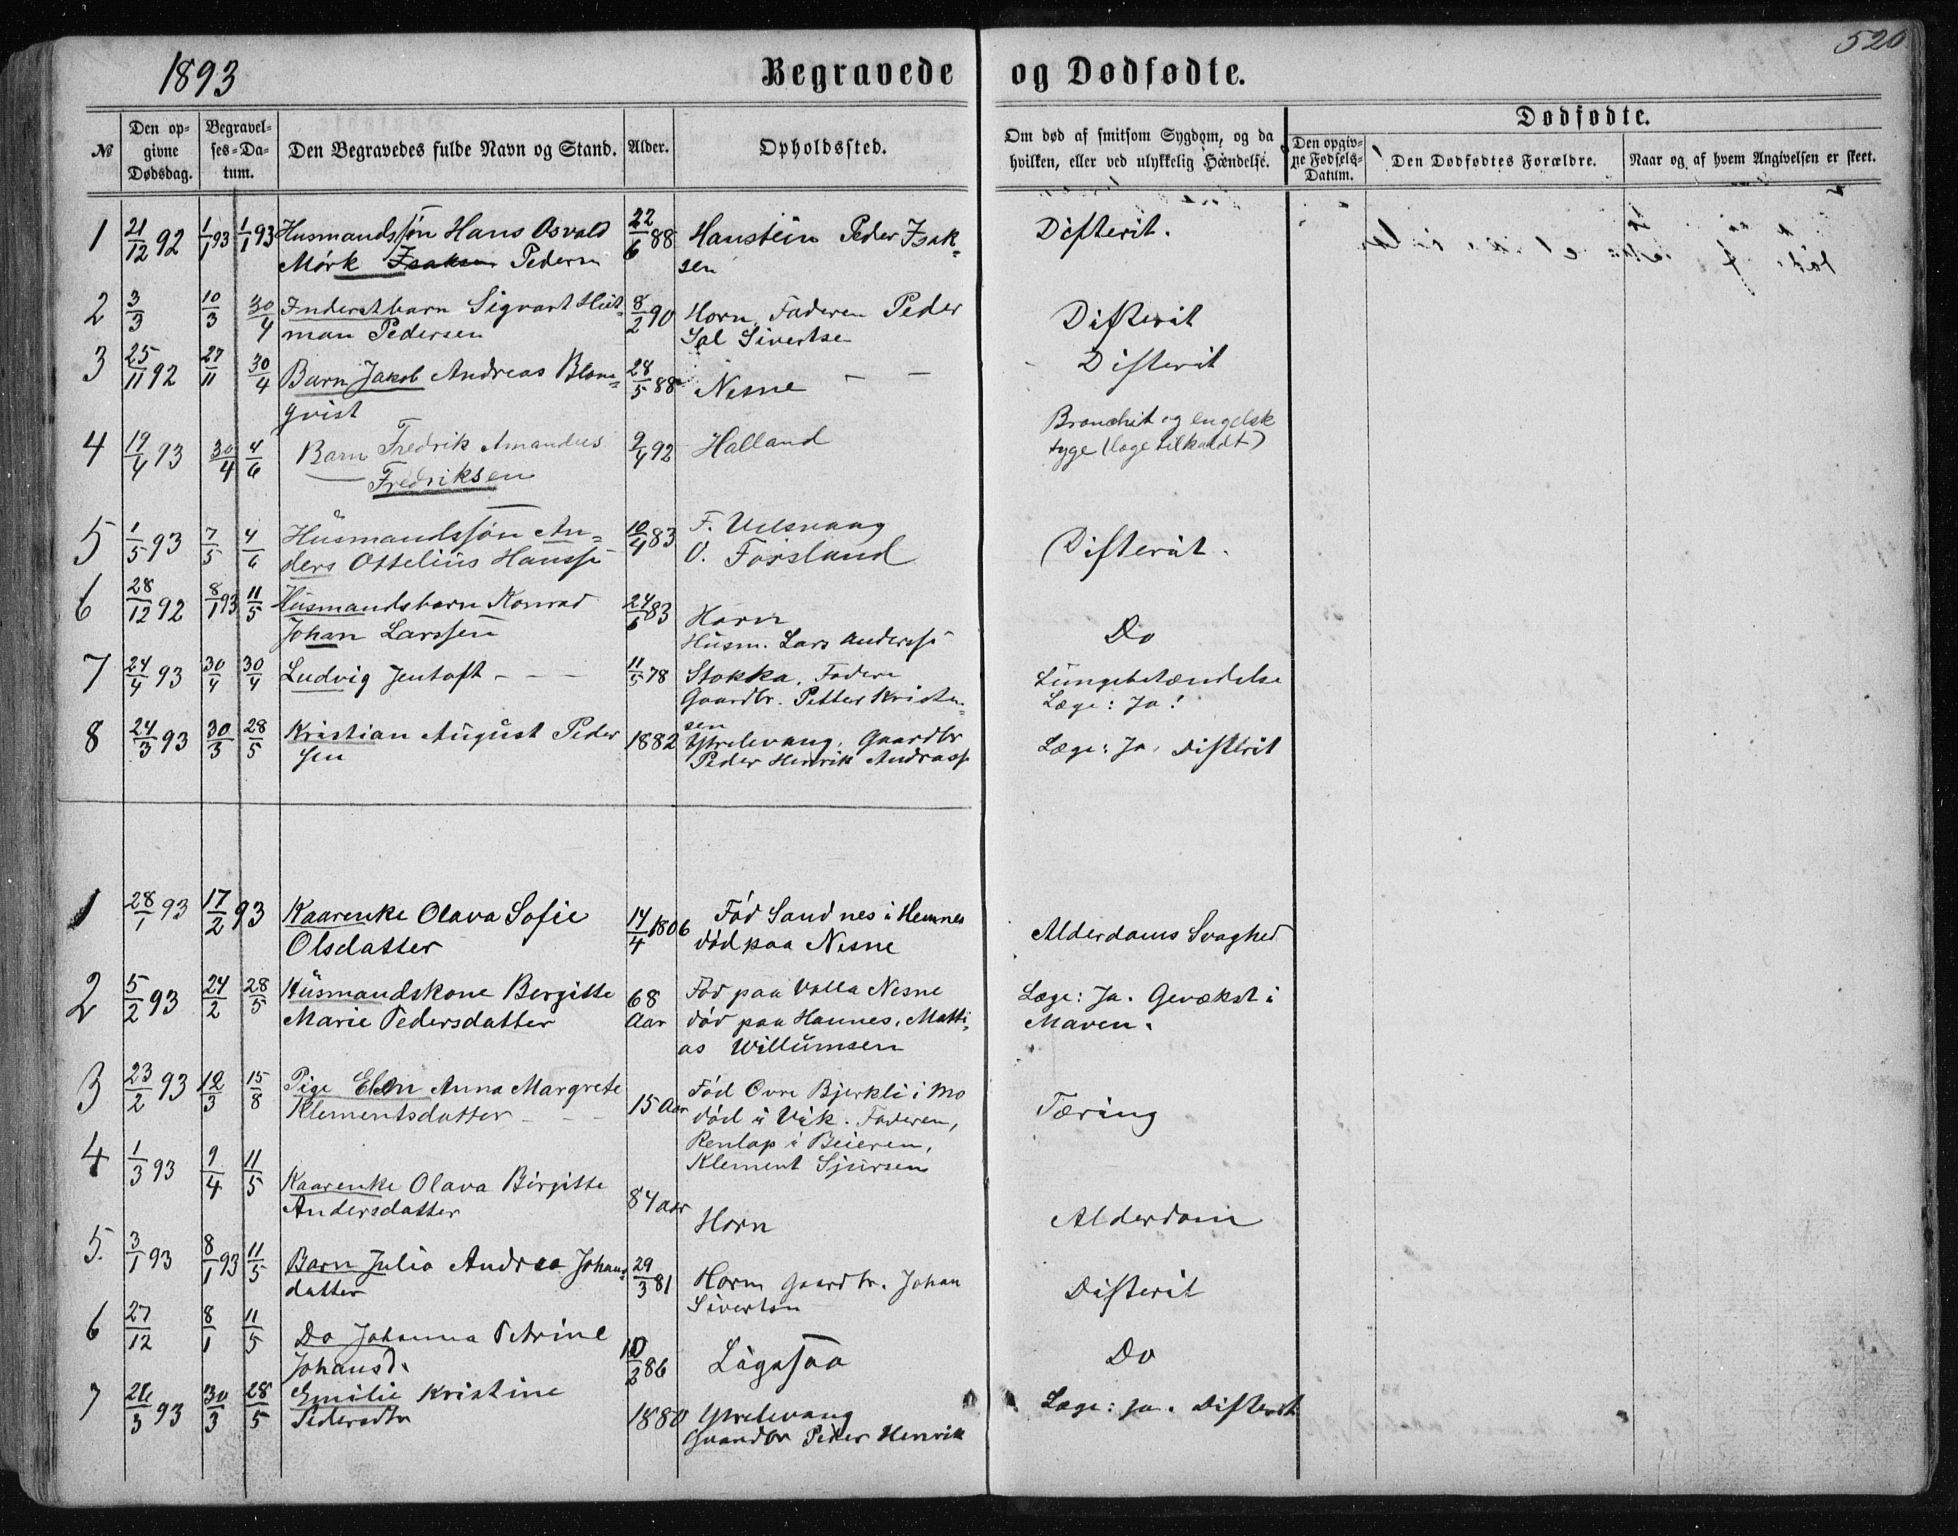 1893 Begravede og Dødfødte. 520
№ Den opgivne Dødsdag. Begravelses-Datum. Den Begravedes fulde Navn og Stand. Alder. Opholdssted. Om død af smitsom Sygdom, og da hvilken, eller ved ulykkelig Hændelse. Dødfødte. Den opgivne Fødsels-Datum. Den Dødfødtes Forældre. Naar og af hvem Angivelsen er skeet.
1 21/12 92 1/1 93 1/1 93 Husmandssøn Hans Osvald 22/6 88 Hanstein Peder Isak- Difterit.
Mørk Isaksen Pedersn sen
2 3/3 10/3 30/4 Inderstbarn Sigvart Hilt- 8/2 90 Horn, Faderen Peder Difterit
man Pedersen Sal Sivertse
3 25/11 92 27/11 30/4 Barn Jakob Andreas Blom- 28/5 88 Nesne — — Difterit
qvist
4 19/4 93 30/4 4/6 Barn Fredrik Amandus 9/4 92 Halland Bronchit og engelsk
Fredriksen syge (læge tilkaldt)
5 1/5 93 7/5 4/6 Husmandssøn An- 10/4 83 F. Vilsvaag Difterit.
ders Ottelius Hanss O. Forsland
6 28/12 92 8/1 93 11/5 Husmandsbarn Konrad 24/6 83 Horn
Johan Larssen Husm. Lars Anderss Do
7 24/4 93 30/4 30/4 Ludvig Jentoft - - - 11/5 78 Stokka. Fadern Lungebetændelse
Gaardbr. Petter Kristen- Læge: Ja!
sen
8 24/3 93 30/3 28/5 Kristian August Peder 1882 Ytrelevang. Gaardbr Læge: Ja. Difterit
sen Peder Henrik Andrass
1 28/1 93 17/2 93 Kaarenke Olava Sofie 14/4 1806 Fød Sandnes i Hemnes
Olsdatter død paa Nesne Alderdoms Svaghed
2 5/2 93 24/2 28/5 Husmandskone Bergitte 68 Fød paa Valla Nesne Læge: Ja. Gevækst i
Marie Pedersdatter Aar død paa Hannes. Matti- Maven.
as Willumsen
3 23/2 93 12/3 15/8 Pige Elen Anna Margrete 15 Aar Fød Øvre Bjerkli i Mo
Klementsdatter - - død i Vik. Faderen, Tæring
Renlap i Beieren,
Klement Sjursen
4 1/3 93 9/4 11/5 Kaarenke Olava Birgitte 84 aar
Andersdatter Horn Alderdom
5. 3/1 93 8/1 93 11/5 Barn Julia Andrea Johans- 29/3 81 Horn Gaardbr. Johan Difterit
datter Sivertsn
6 27/12 8/1 11/5 Do Johanna Petrine 10/2 86 Lägsaa Do
Johansd.
7 26/3 93 30/3 28/5 Emilie Kristine 1880 Ytrelevang Læge: Ja. Difterit
Pedersdtr Gaardbr Peder Henrik